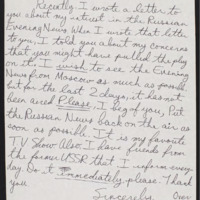 Recently I wrote a letter to
you about my interest in the Russian
Evening News. When I wrote that letter
to you, I told you about my concerns
that you might have pulled the plug
on it. I wish to see the Evening
News from Moscow as much as possible
but for the last 2 days, it has not
been aired. Please, I beg of you, Put
the Russian News back on the air as
soon as possible. It is my favorite
TV Show. Also, I have friends from
the former USSR that I inform every
day. Do it immediately, please. Thank
you
Sincerely,
Over